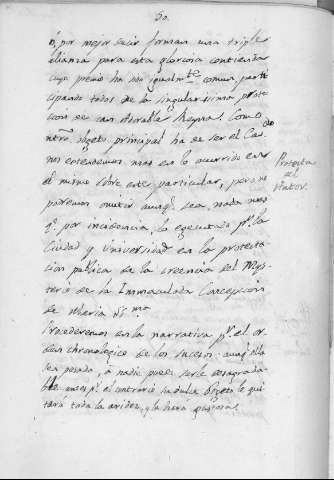 50.
ó, por mejor decir forman una triple
alianza para esta gloriosa contienda
cuyo premio ha sido igualm.te comun, parti
cipando todos de la singularissima protec
cion de tan adorable Reyna. Como
ntro. objeto principal ha de ser el Cavdo
nos extendemos mas en lo ocurrido en
el mismo sobre este particular, pero no
podremos omitir aunq.e sea nada mas
q.e por incidencia lo egecutado p.r la
Ciudad y Universidad en la protesta
cion publica de la creencia del Mys-
terio de la Immaculada Concepcion
de Maria SS.ma
Procederemos en la narrativa p.r el or
den chronologico de los sucesos: aunq.e ella
sea pesada, à nadie puede serle desagrada-
ble antes p.r el contrario la dulce Objeto le qui
tará toda la aridez, y la hará gustosa.
Protesta
del
Autor.